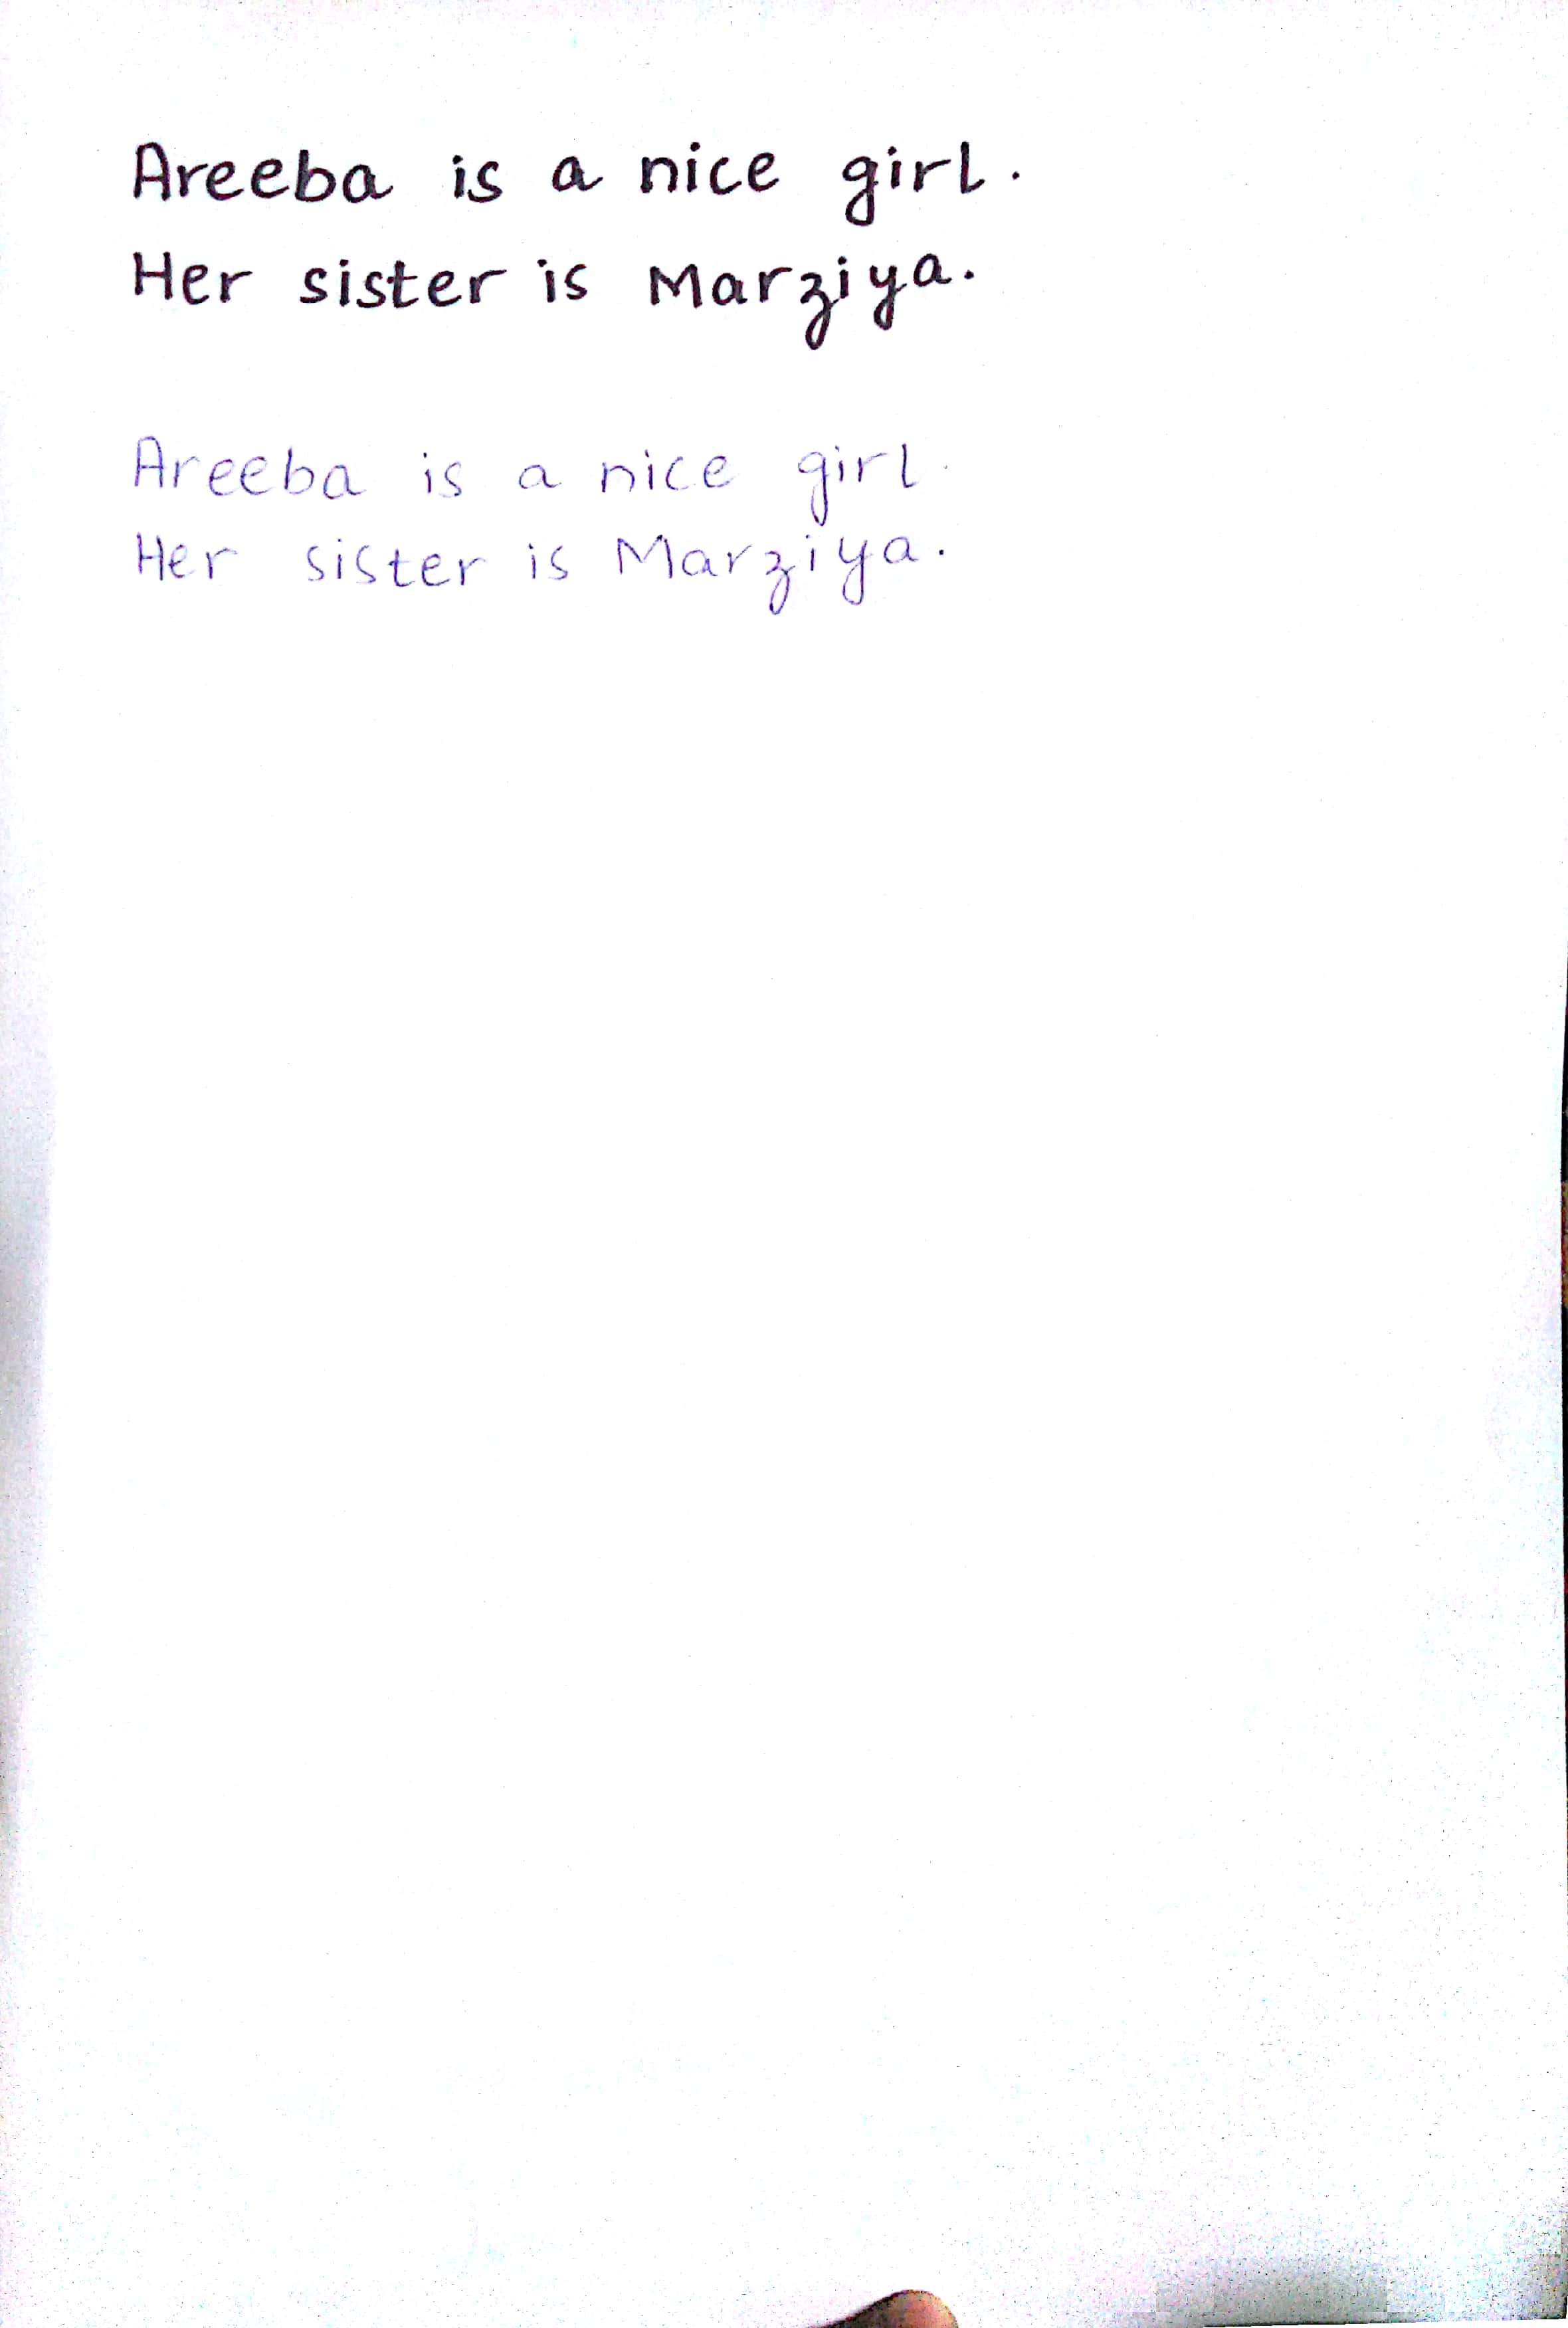 Areeba is a nice girl.
Her sister is Marziya.
Areeba is a nice girl.
Her sister is Marziya.